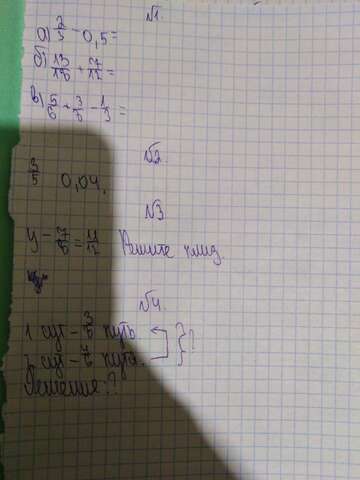 №1.
а) 2/5 - 0,5 =
б) 13/18 + 7/12 =
в) 5/6 + 3/8 - 1/3 =
№2.
3/5 0,04.
№3
у - 7/8 = 11/12 Решите
№4.
1 сут - 3/8 путь
2 сут - 7/ пути } ?
Решение: ?